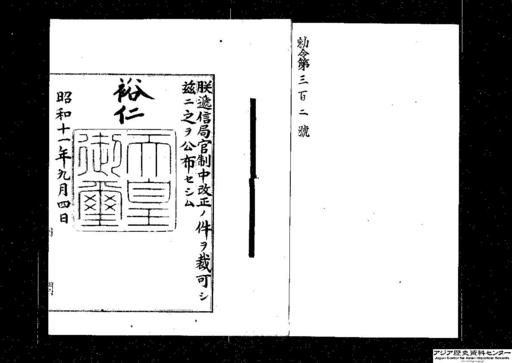 勅令第三百二號
朕遞信局官制中改正ノ件ヲ裁可シ
玆ニ之ヲ公布セシム
裕仁
天皇
御璽
昭和十一年九月四日
アジア歴史資料センター
Japan Center for Asian Historical Records